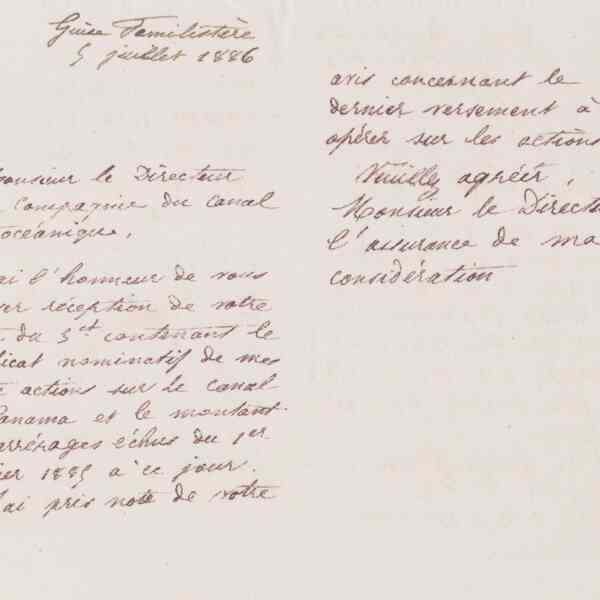 Guise Familistère
5 juillet 1886
onsieur le Directeur
Compagnie du Canal
océanique,
ai l'honneur de vous
er réception de votre
du 3ct contenant le
icat nominatif de mes
actions sur le canal
Panama et le montant
arrérages échus du 1er
ier 1885 à ce jour.
'ai pris note de votre
avis concernant le
dernier versement à
opérer sur les actions
Veuillez agréer,
Monsieur le Directe
l'assurance de ma
considération